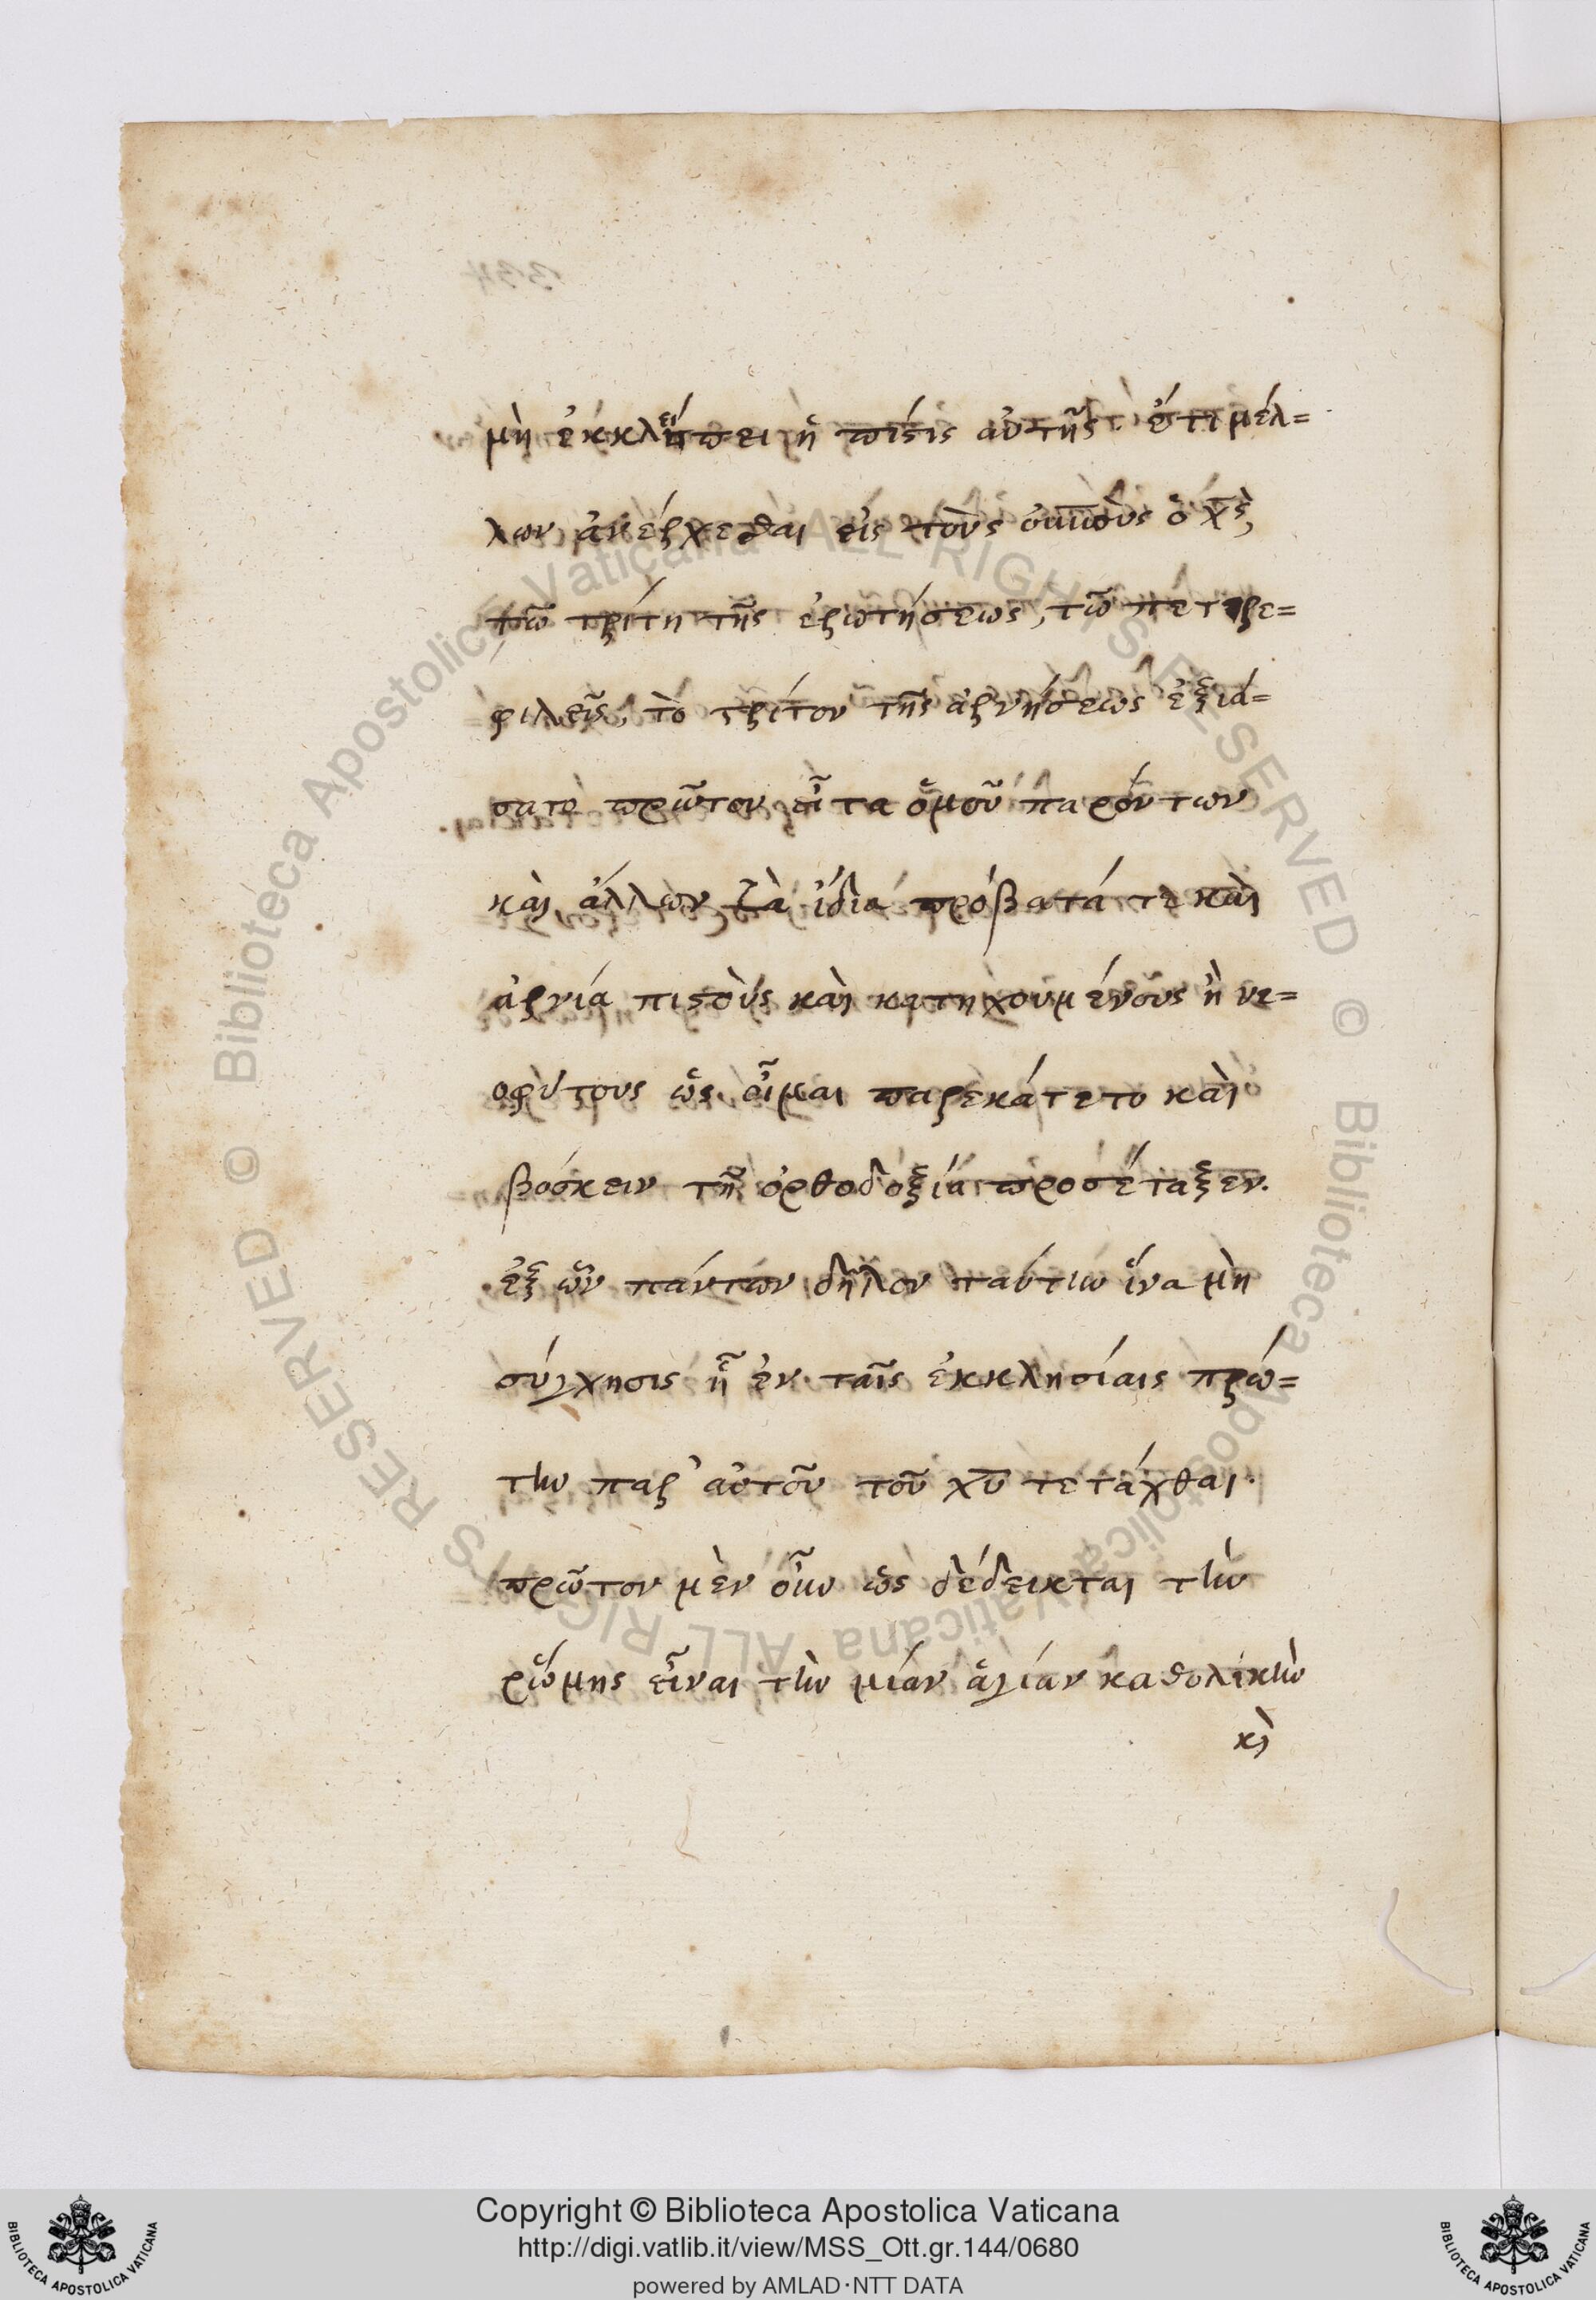 μὴ ἐκκλείπει ἡ πίστις αὐτῆς· ὅτι μέλ=
λων ἀνέρχεσθαι εἰς τοὺς οὐνοὺς ὁ χς,
τῶ τρίτη τῆς ἐρωτήσεως, τῶ πέτρε
φιλεῖς, τὸ τρίτον τῆς ἀρνήσεως ἐξιά=
σατο πρῶτον, εἶτα ὁμοῦ παρόντων
καὶ ἄλλων τὰ ἴδια πρόβατά τε καὶ
ἀρνία πιστοὺς καὶ κατηχουμένους ἢ νε=
οφύτους ὡς οἶμαι παρεκάτετο καὶ
βόσκειν τῆ ὀρθοδοξία προσέταξεν.
ἐξ ὧν πάντων δῆλον ταύτην ἵνα μὴ
σύγχησις ᾖ ἐν ταῖς ἐκκλησίαις πρώ=
την παρ' αὐτοῦ τοῦ χυ τετάχθαι·
πρῶτον μὲν οὖν ὡς δέδεικται τὴν
ῥώμης εἶναι τὴν μίαν ἁγίαν καθολικὴν
κὶ
Copyright © Biblioteca Apostolica Vaticana
http://digi.vatlib.it/view/MSS_Ott.gr.144/0680
powered by AMLAD·NTT DATA
BIBLIOTECA APOSTOLICA VATICANA
BIBLIOTECA APOSTOLICA VATICANA
© Biblioteca Apostolica Vaticana ALL RIGHTS RESERVED © Biblioteca Apostolica Vaticana ALL RIGHTS RESERVED